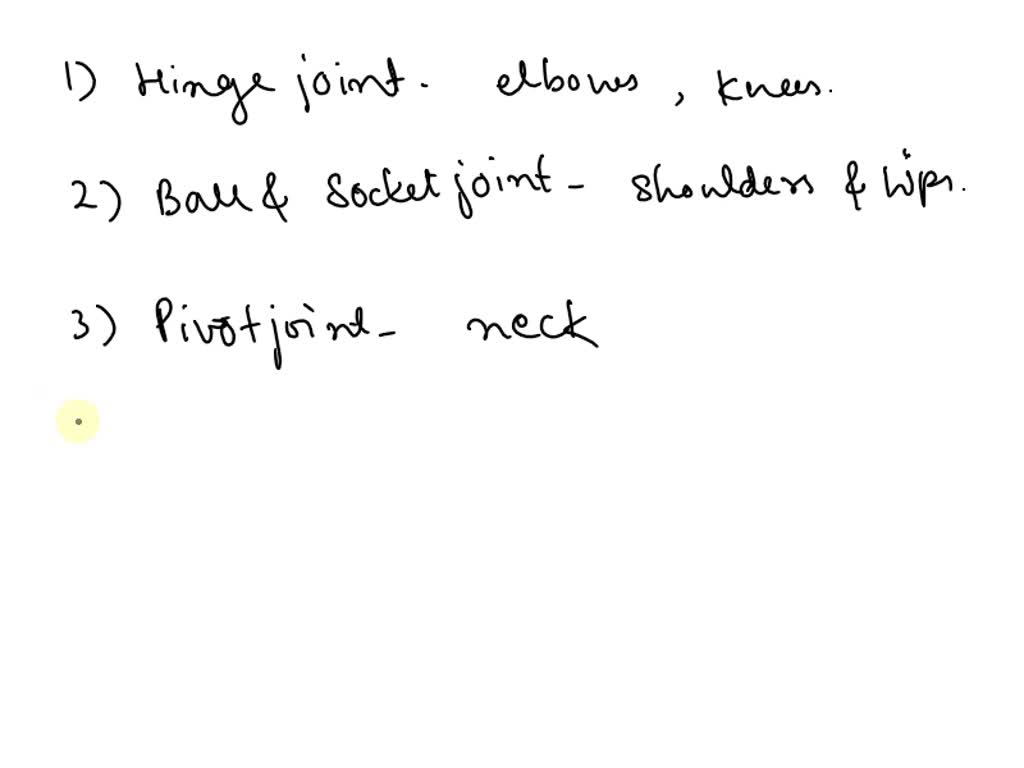 1) Hinge joint. elbows, knees.
2) Ball & Socket joint - shoulders & hips.
3) Pivot joint - neck